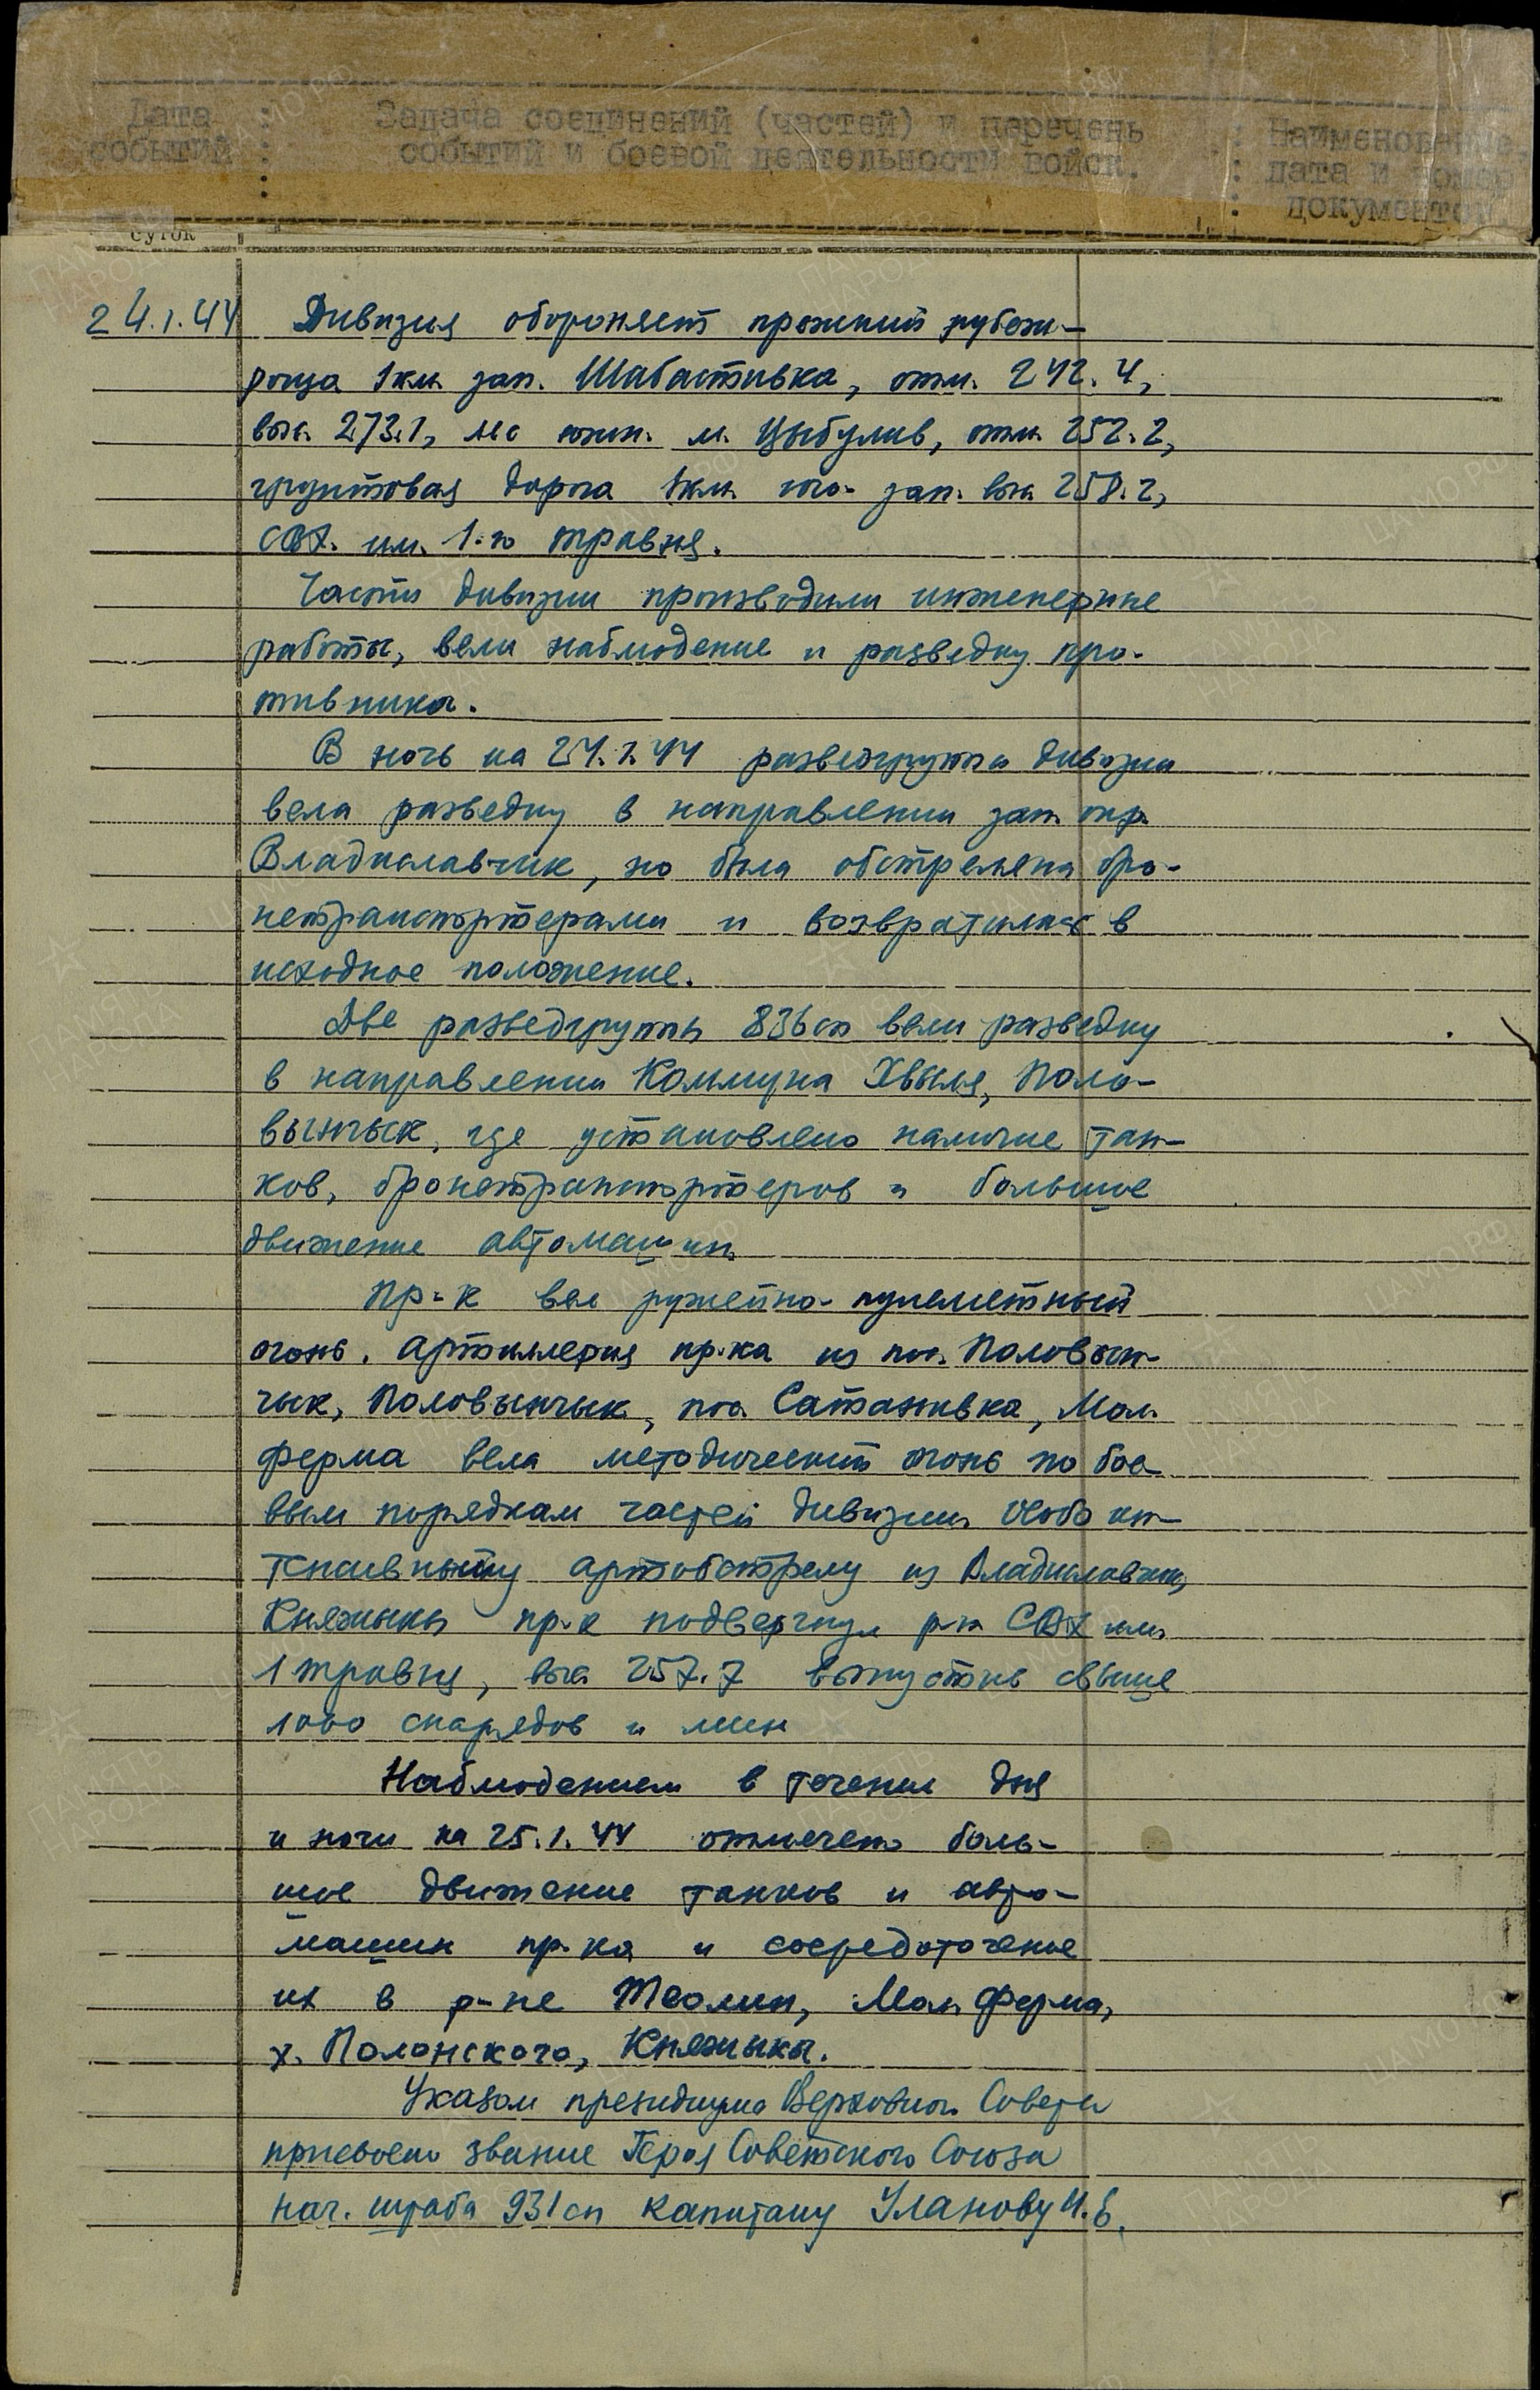 Дата событий : Задача соединений (частей) и перечень событий и боевой деятельности войск. : Наименование, дата и номер документов
суток
24.1.44 Дивизия обороняет прежний рубеж –
роща 1 км. зап. Шабастивка, отм. 242.4,
выс. 273.1, южн. м. Цыбулив, отм. 252.2,
грунтовая дорога 1 км. юго-зап. выс. 258.2,
СВХ. им. 1-го травня.
Части дивизии производили инженерные
работы, вели наблюдение и разведку про-
тивника.
В ночь на 24.1.44 разведгруппа дивизии
вела разведку в направлении зап. окр.
Владиславчик, но была обстреляна бро-
нетранспортерами и возвратилась в
исходное положение.
Две разведгруппы 836 сп вели разведку
в направлении Коммуна Хвыля, Поло-
вынчык, где установлено наличие тан-
ков, бронетранспортеров и большое
движение автомашин.
Пр-к вел ружейно-пулеметный
огонь. Артиллерия пр-ка из пос. Половын-
чык, Половынчык, пос. Сатанивка, Мол.
ферма вела методический огонь по бое-
вым порядкам частей дивизии. Особо ин-
тенсивному артобстрелу из Владиславчик,
Княжыкы пр-к подвергнул р-н СВХ им.
1 травня, выс. 257.7 выпустив свыше
1000 снарядов и мин
Наблюдением в течение дня
и ночи на 25.1.44 отмечено боль-
шое движение танков и авто-
машин пр-ка и сосредоточение
их в р-не Теолин, Мол. ферма,
х. Полонского, Княжыкы.
Указом президиума Верховного Совета
присвоено звание Героя Советского Союза
нач. штаба 931 сп капитану Уланову И.Е.